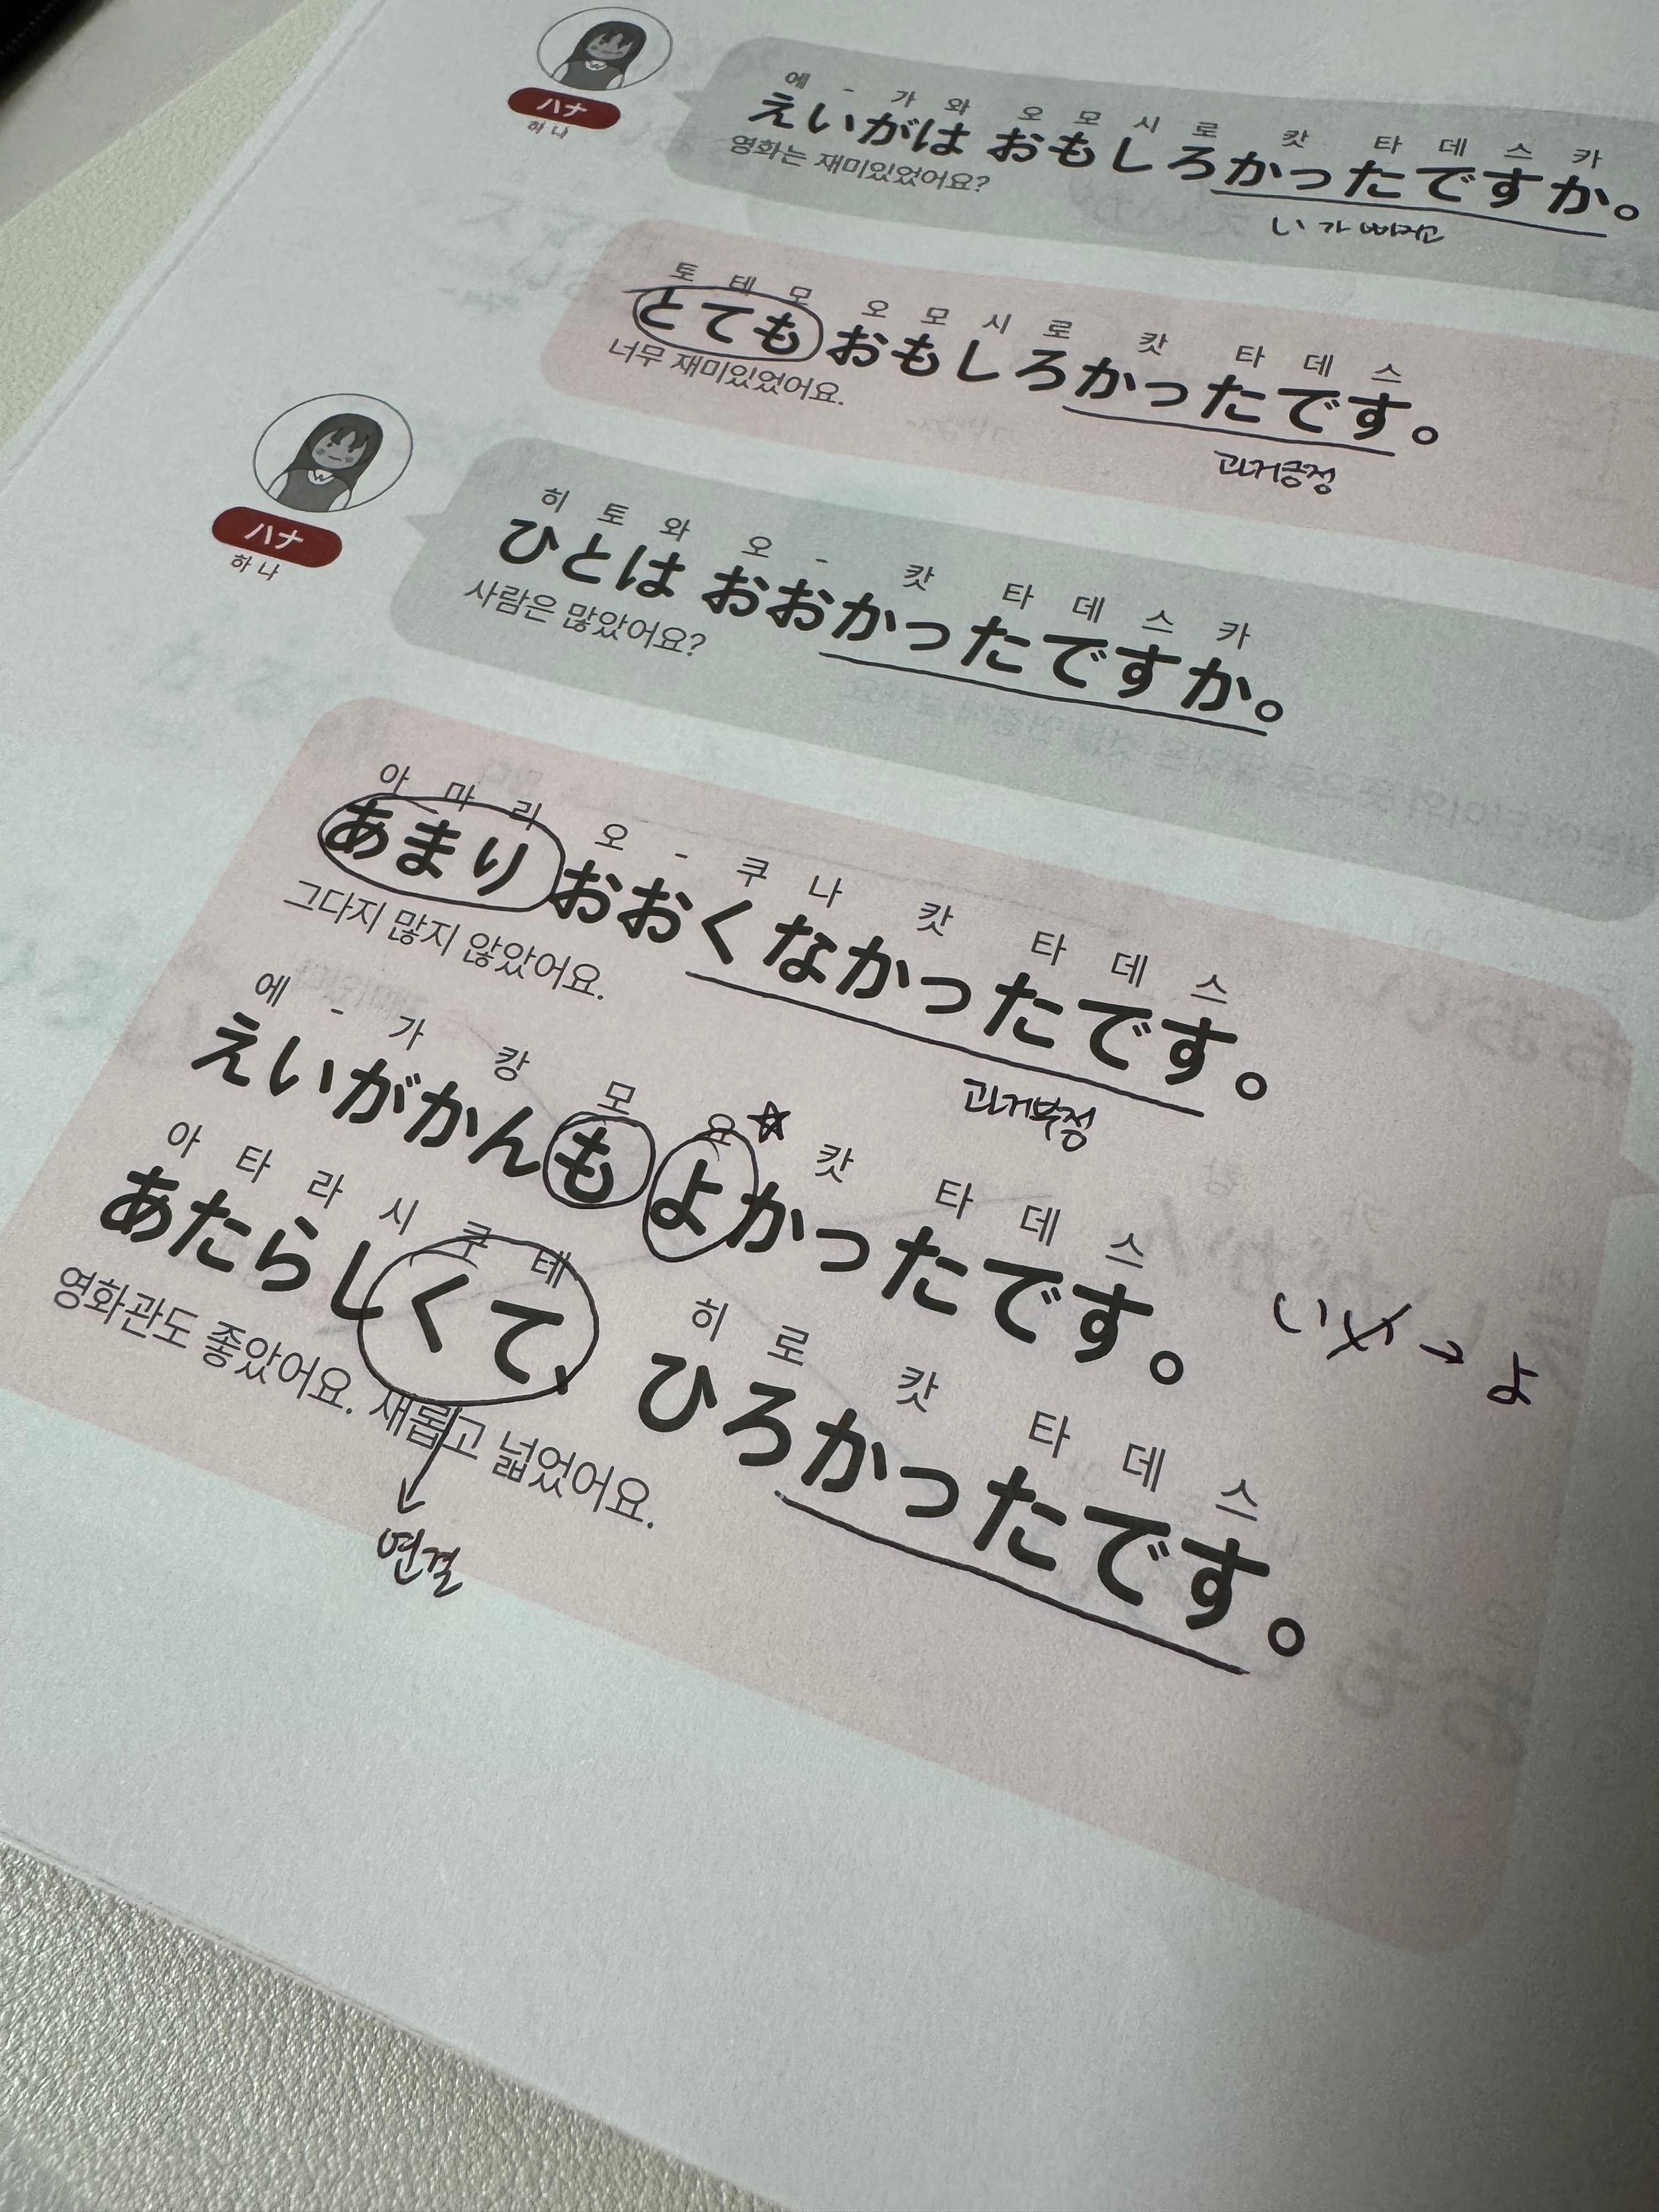 에 - 가 와 오 모 시 로 캇 타 데 스 카
えいがは おもしろかったですか。
ハナ
하나
영화는 재미있었어요?
い가 빠지고
토 테 모 오 모 시 로 캇 타 데 스
とても おもしろかったです。
너무 재미있었어요.
과거긍정
히 토 와 오 - 캇 타 데 스 카
ひとは おおかったですか。
ハナ
하나
사람은 많았어요?
아 마 리 오 - 쿠 나 캇 타 데 스
あまり おおくなかったです。
그다지 많지 않았어요.
과거부정
에 - 가 캉 모 요 캇 타 데 스
えいがかんも よかったです。
いい → よ
아 타 라 시 쿠 테 히 로 캇 타 데 스
あたらしくて、 ひろかったです。
영화관도 좋았어요. 새롭고 넓었어요.
연결